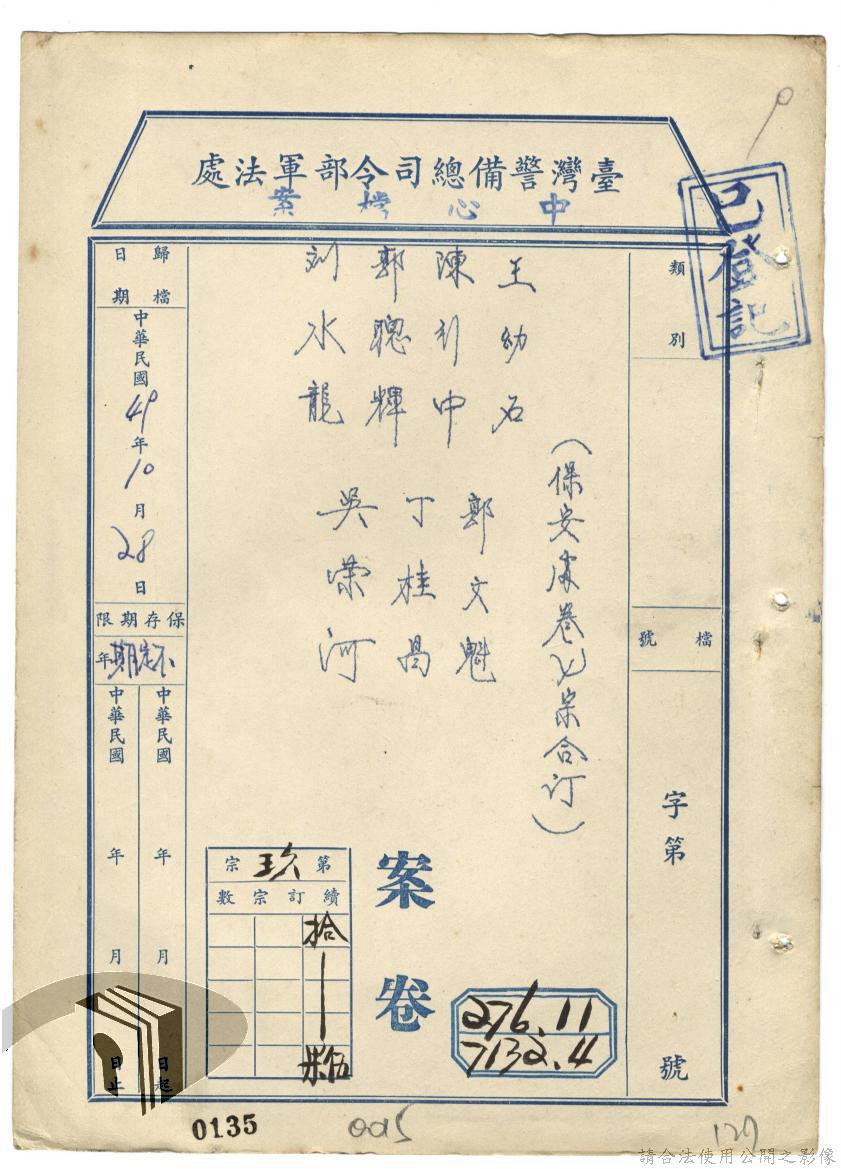 臺灣警備總司令部軍法處
中心檔案
已登記
類別
檔號
字第
號
王幼石
陳行中
郭聰輝
刘水龍
郭文魁
丁桂昌
吳榮河
(保安處卷 宗合订)
案卷
276.11
7132.4
第玖宗
續訂宗數
拾
|
歸檔日期
中華民國49年10月28日
保存期限
不定期年
中華民國 年 月 日起
中華民國 年 月 日止
0135
0015
127
請合法使用公開之影像